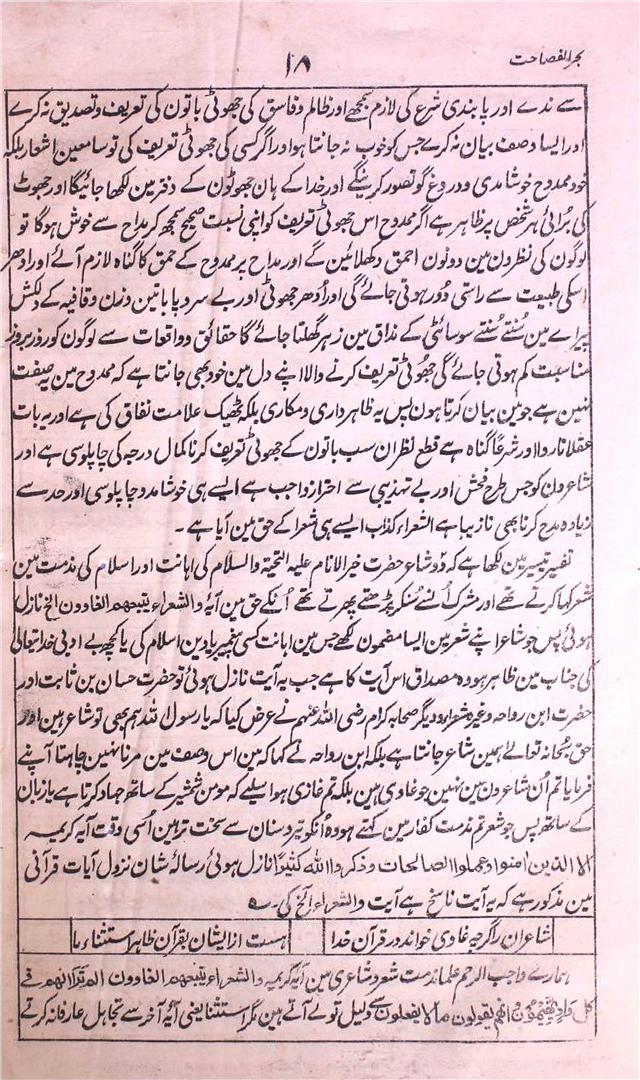 بحر الفصاحت
۱۸
سے ندے اور پابندی شرع کی لازم سمجھے اور ظالم و فاسق کی جھوٹی باتون کی تعریف و تصدیق نہ کرے
اور ایسا وصف بیان نہ کرے جس کو خوب نہ جانتا ہو اور اگر کسی کی جھوٹی تعریف کی تو سامعین اشعار بلکہ
خود ممدوح خوشامدی و دروغ گو تصور کرینگے اور خدا کے ہان جھوٹون کے دفتر مین لکھا جائیگا اور جھوٹ
کی بُرائی ہر شخص پر ظاہر ہے اگر ممدوح اس جھوٹی تعریف کو اپنی نسبت صحیح سمجھ کر مداح سے خوش ہوگا تو
لوگون کی نظرون مین دونون احمق دکھلائین گے اور مداح پر ممدوح کے حمق کا گناہ لازم آئے اور ادھر
اسکی طبیعت سے راستی دُور ہوتی جائے گی اور اُدھر جھوٹی اور بے سروپا باتین وزن و قافیہ کے دلکش
پیراے مین سُنتے سُنتے سوسائٹی کے مذاق مین زہر گھلتا جائے گا حقائق و واقعات سے لوگون کو روز بروز
مناسبت کم ہوتی جائے گی جھُوٹی تعریف کرنے والا اپنے دل مین خود بھی جانتا ہے کہ ممدوح مین یہ صفت
نہین ہے جو مین بیان کرتا ہون پس یہ ظاہر داری و مکاری بلکہ ٹھیک علامت نفاق کی ہے اور یہ بات
عقلاً ناروا اور شرعاً گناہ ہے قطع نظر ان سب باتون کے جھوٹی تعریف کرنا کمال درجہ کی چاپلوسی ہے اور
شاعرون کو جس طرح فحش اور بے تہذیبی سے احتراز واجب ہے ایسے ہی خوشامد و چاپلوسی اور حد سے
زیادہ مدح کرنا بھی نازیبا ہے الشعراء کذاب ایسے ہی شعرا کے حق مین آیا ہے ۔
تفسیر تیسیر مین لکھا ہے کہ دَو شاعر حضرت خیر الانام علیہ التحیۃ والسلام کی اہانت اور اسلام کی مذمت مین
شعر کہا کرتے تھے اور مشرک اُنسے سُنکر پڑھتے پھرتے تھے اُنکے حق مین آیۂ والشعراء یتبعھم الغاوون الخ نازل
ہوئی پس جو شاعر اپنے شعر مین ایسا مضمون لکھے جس مین اہانت کسی پیغمبر یا دین اسلام کی یا کچھ بے ادبی خدا تعالیٰ
کی جناب مین ظاہر ہو وہ مصداق اس آیت کا ہے جب یہ آیت نازل ہوئی تو حضرت حسان بن ثابت اور
حضرت ابن رواحہ وغیرہ شعرا و دیگر صحابہ کرام رضی اللہ عنہم نے عرض کیا کہ یا رسول اللہ ہم بھی تو شاعر ہین اور
حق سبحانہ تو الے ہمین شاعر جانتا ہے بلکہ ابن رواحہ نے کہا کہ مین اس وصف مین مرنا نہین چاہتا آپنے
فرمایا تم اُن شاعرون مین نہین جو غاوی ہین بلکہ تم غازی ہو اسلیے کہ مومن شمشیر کے ساتھ جہاد کرتا ہے یا زبان
کے ساتھ پس جو شعر تم مذمت کفار مین کہتے ہو وہ اُنکو تیر و سنان سے سخت تر ہین اُسی وقت آیہ کریمہ
الا الذین امنوا وعملوا الصالحات وذکروا اللہ کثیرًا نازل ہوئی رسالۂ شان نزول آیات قرآنی
مین مذکور ہے کہ یہ آیت ناسخ ہے آیت والشعراء الخ کی۔
شاعران را گرچہ غاوی خواند در قرآن خدا ہست از ایشان بقرآن ظاہر استثناء ما
ہمارے واجب الرحم علما مذمت شعر و شاعری مین آیہ کریمہ والشعراء یتبعھم الغاوون الم تر انھم فے
کل وادٍ یھیمون وانھم یقولون مالا یفعلون سے دلیل تو لے آتے ہین مگر استثنا یعنی آیۂ آخر سے تجاہل عارفانہ کرتے